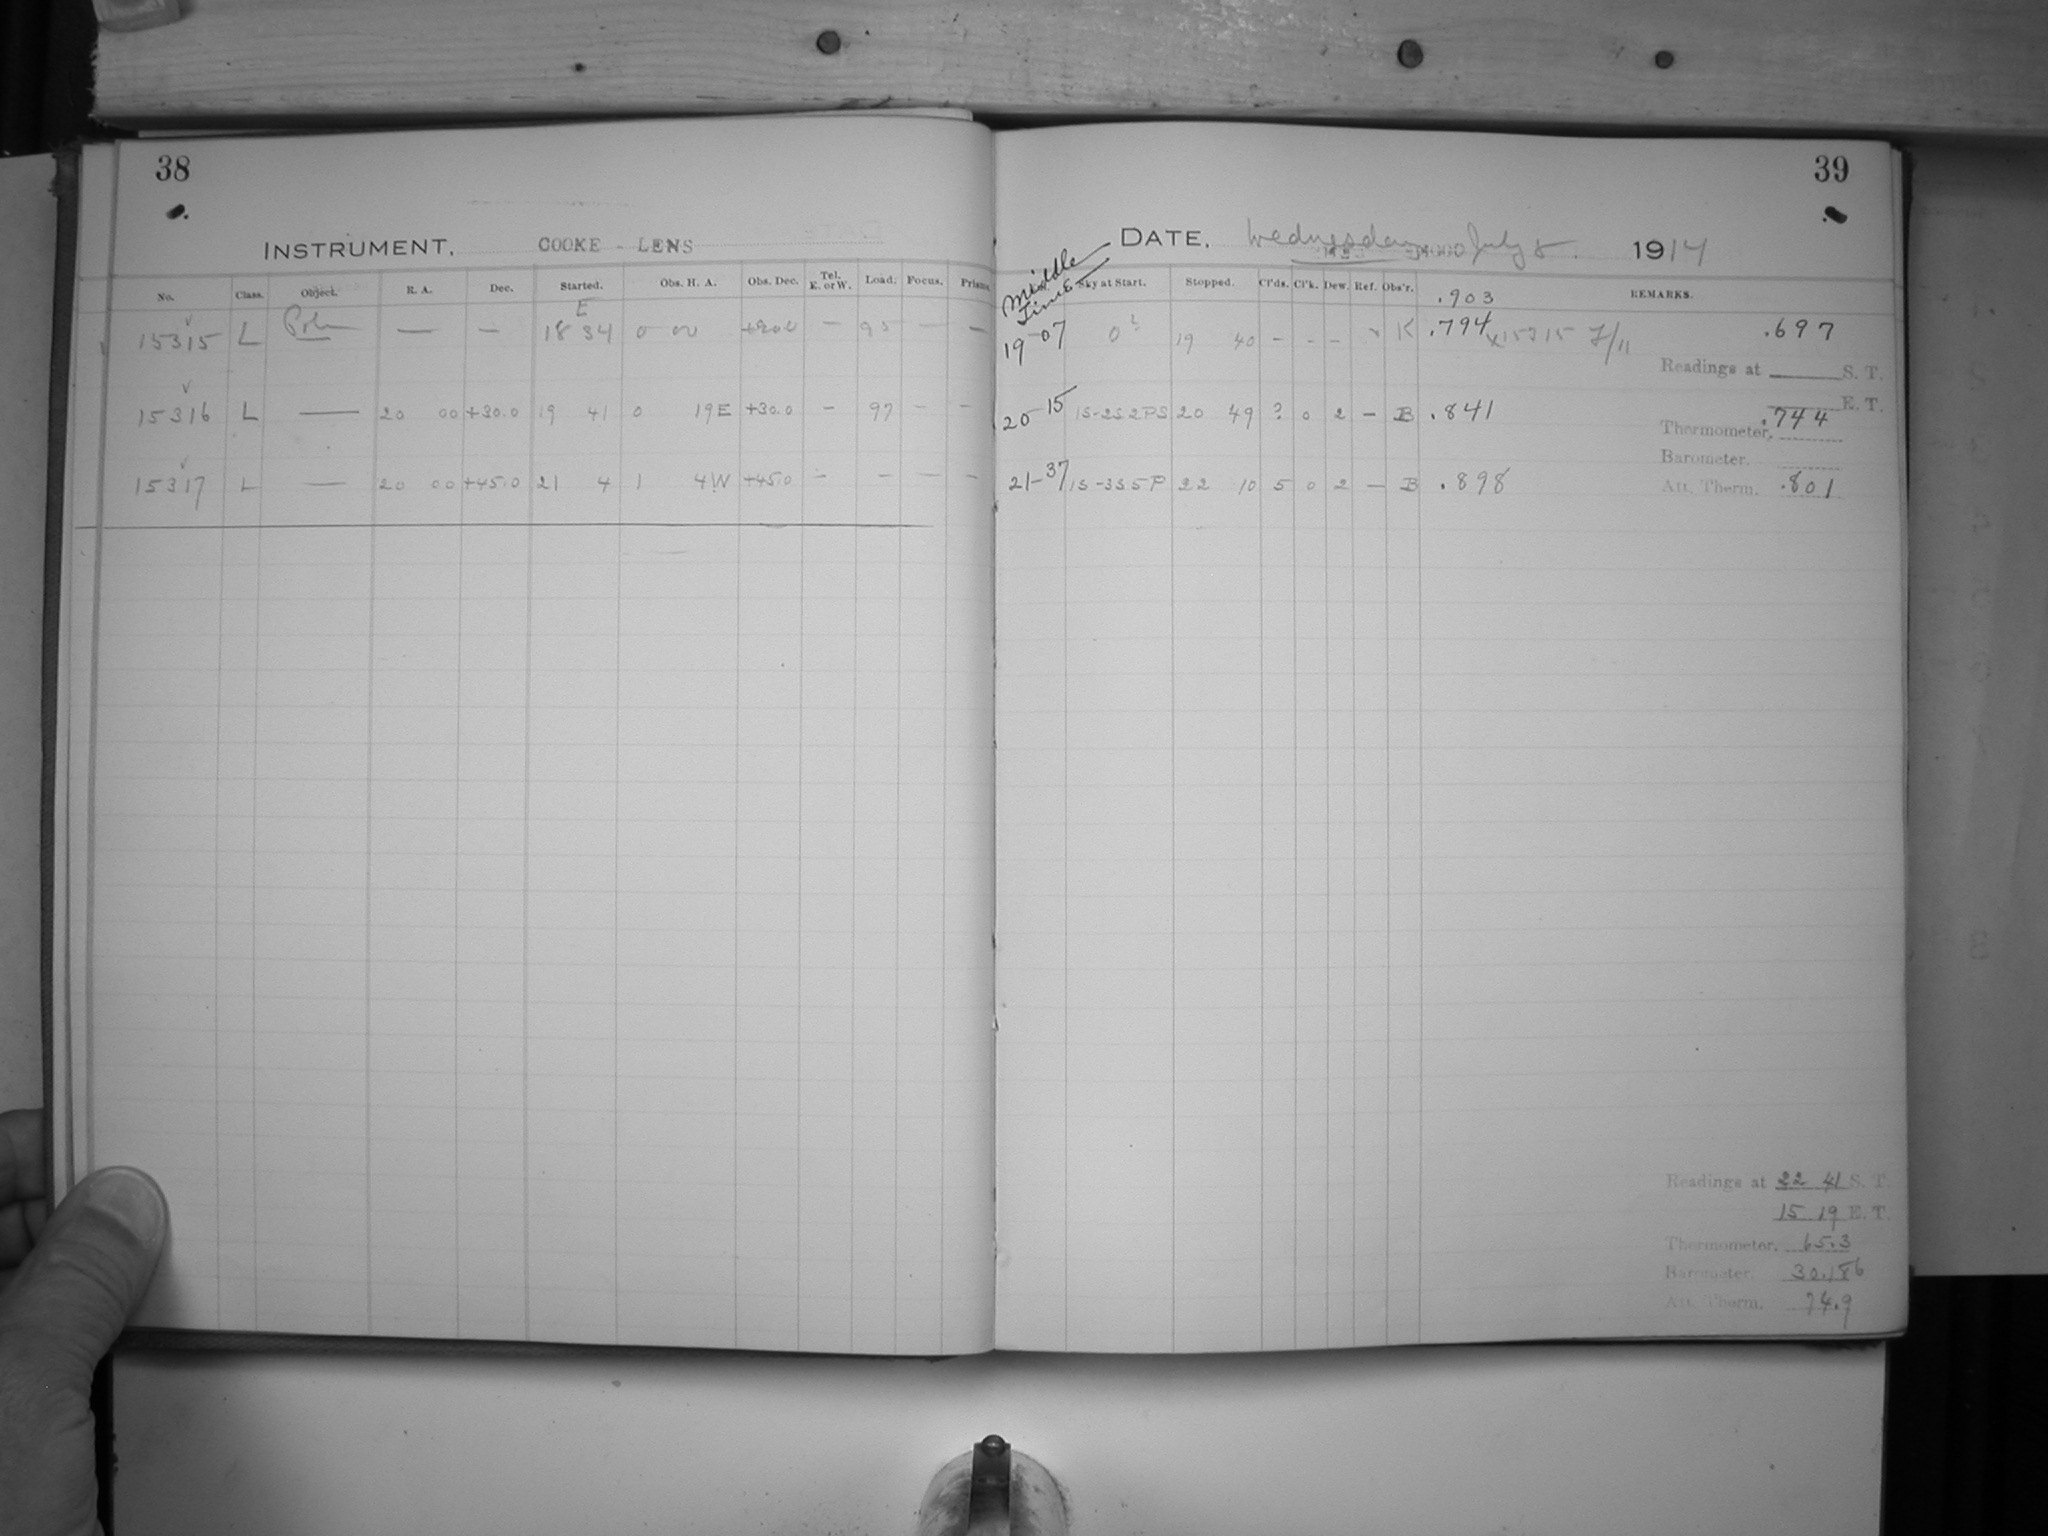 38
INSTRUMENT, COOKE - LENS
No. Class. Object. R. A. Dec. Started. Obs. H. A. Obs. Dec. Tel. E. or W. Load. Focus. Prisms
E
15315 L — — 18 34 0 00 — 95 — —
15316 L — 20 00 +30.0 19 41 0 19E +30.0 — 97 — —
15317 L — 20 00 +45.0 21 4 1 4W +45.0 — — — —
39
DATE, Wednesday July 8. 1914
Middle Time Sky at Start. Stopped. Cl'ds. Cl'k. Dew. Ref. Obs'r. REMARKS.
.903
19-07 0? 19 40 - - - K .794 x15315 .697
Readings at S. T.
E. T.
20-15 1S-2S2PS 20 49 ? 0 2 — B .841 .744
Thermometer,
Barometer.
21-37 1S-3S5P 22 10 5 0 2 — B .898 Att. Therm. .801
Readings at 22 41 S. T.
15 19 E. T.
Thermometer, 65.3
Barometer. 30.186
Att. Therm. 74.9